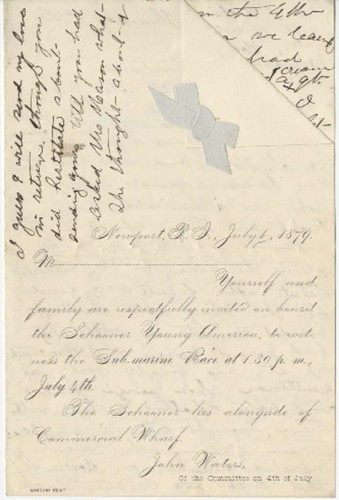 I guess I will send my love
in return, though you
did hesitate about
sending yours till you had
asked Mrs Mason what
she thought about it
on the 4th
we leave
had
cream
I
Newport, R. I., July 1, 1879.
M
Yourself and
family are respectfully invited on board
the Schooner Young America, to wit-
ness the Sub-marine Race at 1.30 p. m.,
July 4th.
The Schooner lies alongside of
Commercial Wharf.
John Waters,
Of the Committee on 4th of July